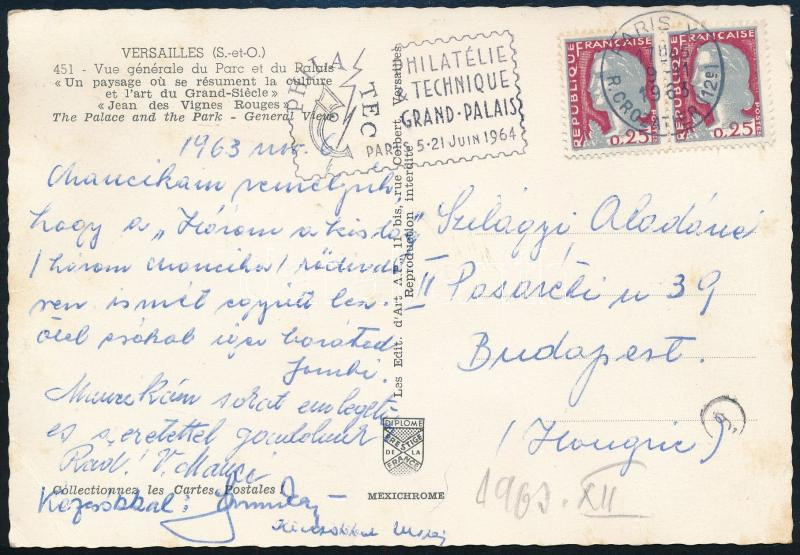 VERSAILLES (S.-et-O.)
451 - Vue générale du Parc et du Palais
« Un paysage où se résument la culture
et l'art du Grand-Siècle »
« Jean des Vignes Rouges »
The Palace and the Park - General View
PHILATEC
PHILATÉLIE
& TECHNIQUE
GRAND-PALAIS
PARIS 5-21 JUIN 1964
REPUBLIQUE FRANÇAISE
0,25
POSTES
REPUBLIQUE FRANÇAISE
0,25
POSTES
PARIS
1963
(12e)
1963 nov.
Mancikám reméljük
hogy a „Három a kislány"
/három Mancika/ rövid
ismét együtt
csókol igaz barátod
Jombi.
Mancikám sokat emleget
és szeretettel gondolunk
Rád! V. Manci
Kézcsókkal:
Les Edit. d'Art A.P., 11 bis, rue Colbert, Versailles
Reproduction interdite
Szilágyi Aladárné
II Pasaréti u 39
Budapest.
(Hongrie)
DIPLOME
PRESTIGE
DE LA
FRANCE
Collectionnez les Cartes Postales !
MEXICHROME
1963. XII